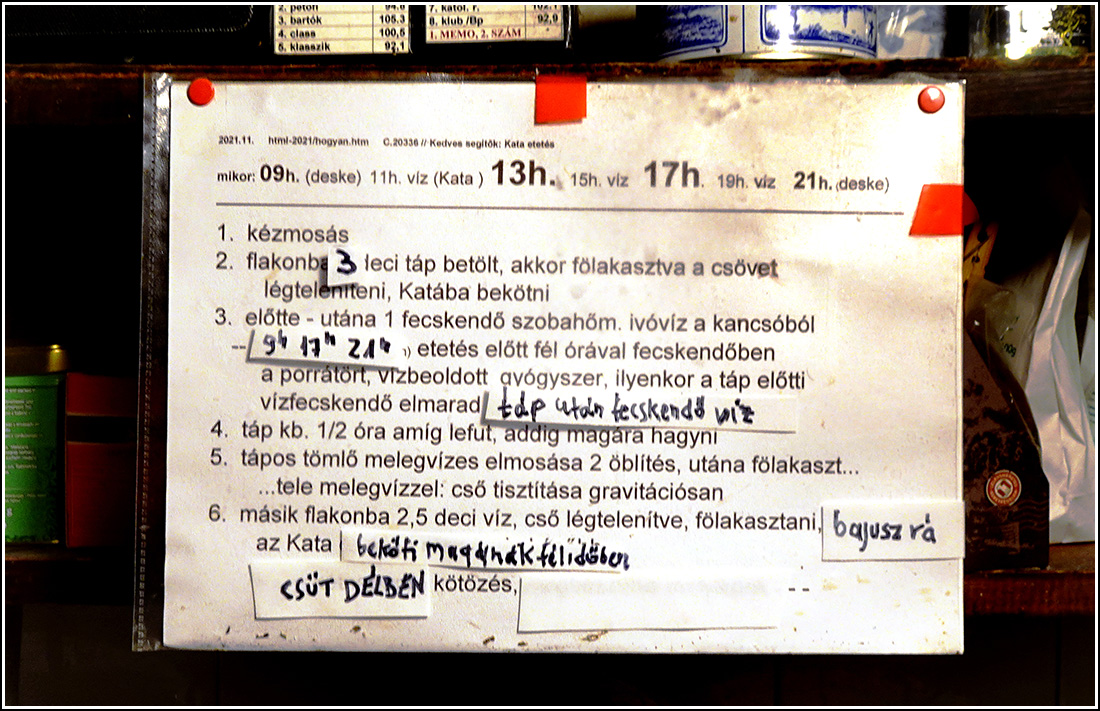 2. petőfi
3. bartók 105,3
4. class 100,5
5. klasszik 92,1
7. katol. r.
8. klub /Bp 92,9
1. MEMO, 2. SZÁM
2021.11. html-2021/hogyan.htm C.20336 // Kedves segítők: Kata etetés
mikor: 09h. (deske) 11h. víz (Kata ) 13h. 15h. víz 17h. 19h. víz 21h. (deske)
1. kézmosás
2. flakonba 3 deci táp betölt, akkor fölakasztva a csövet
légteleníteni, Katába bekötni
3. előtte - utána 1 fecskendő szobahőm. ivóvíz a kancsóból
-- 9h 17h 21h etetés előtt fél órával fecskendőben
a porrátört, vízbeoldott gyógyszer, ilyenkor a táp előtti
vízfecskendő elmarad táp után fecskendő víz
4. táp kb. 1/2 óra amíg lefut, addig magára hagyni
5. tápos tömlő melegvízes elmosása 2 öblítés, utána fölakaszt...
...tele melegvízzel: cső tisztítása gravitációsan
6. másik flakonba 2,5 deci víz, cső légtelenítve, fölakasztani, bajusz rá
az Kata beköti magának félidőben
CSÜT DÉLBEN kötözés, --